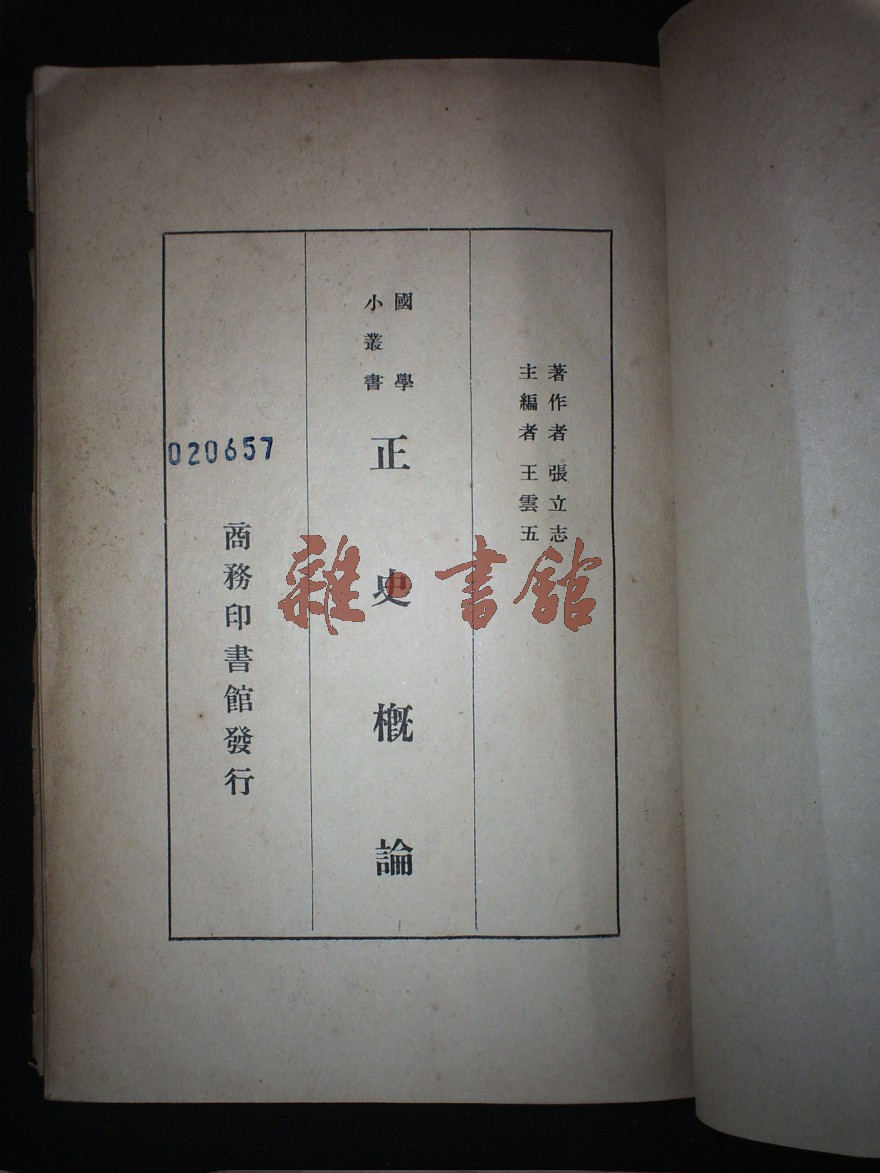 著作者 張立志
主編者 王雲五
國學
小叢書
正史概論
020657
商務印書館發行
雜·書館